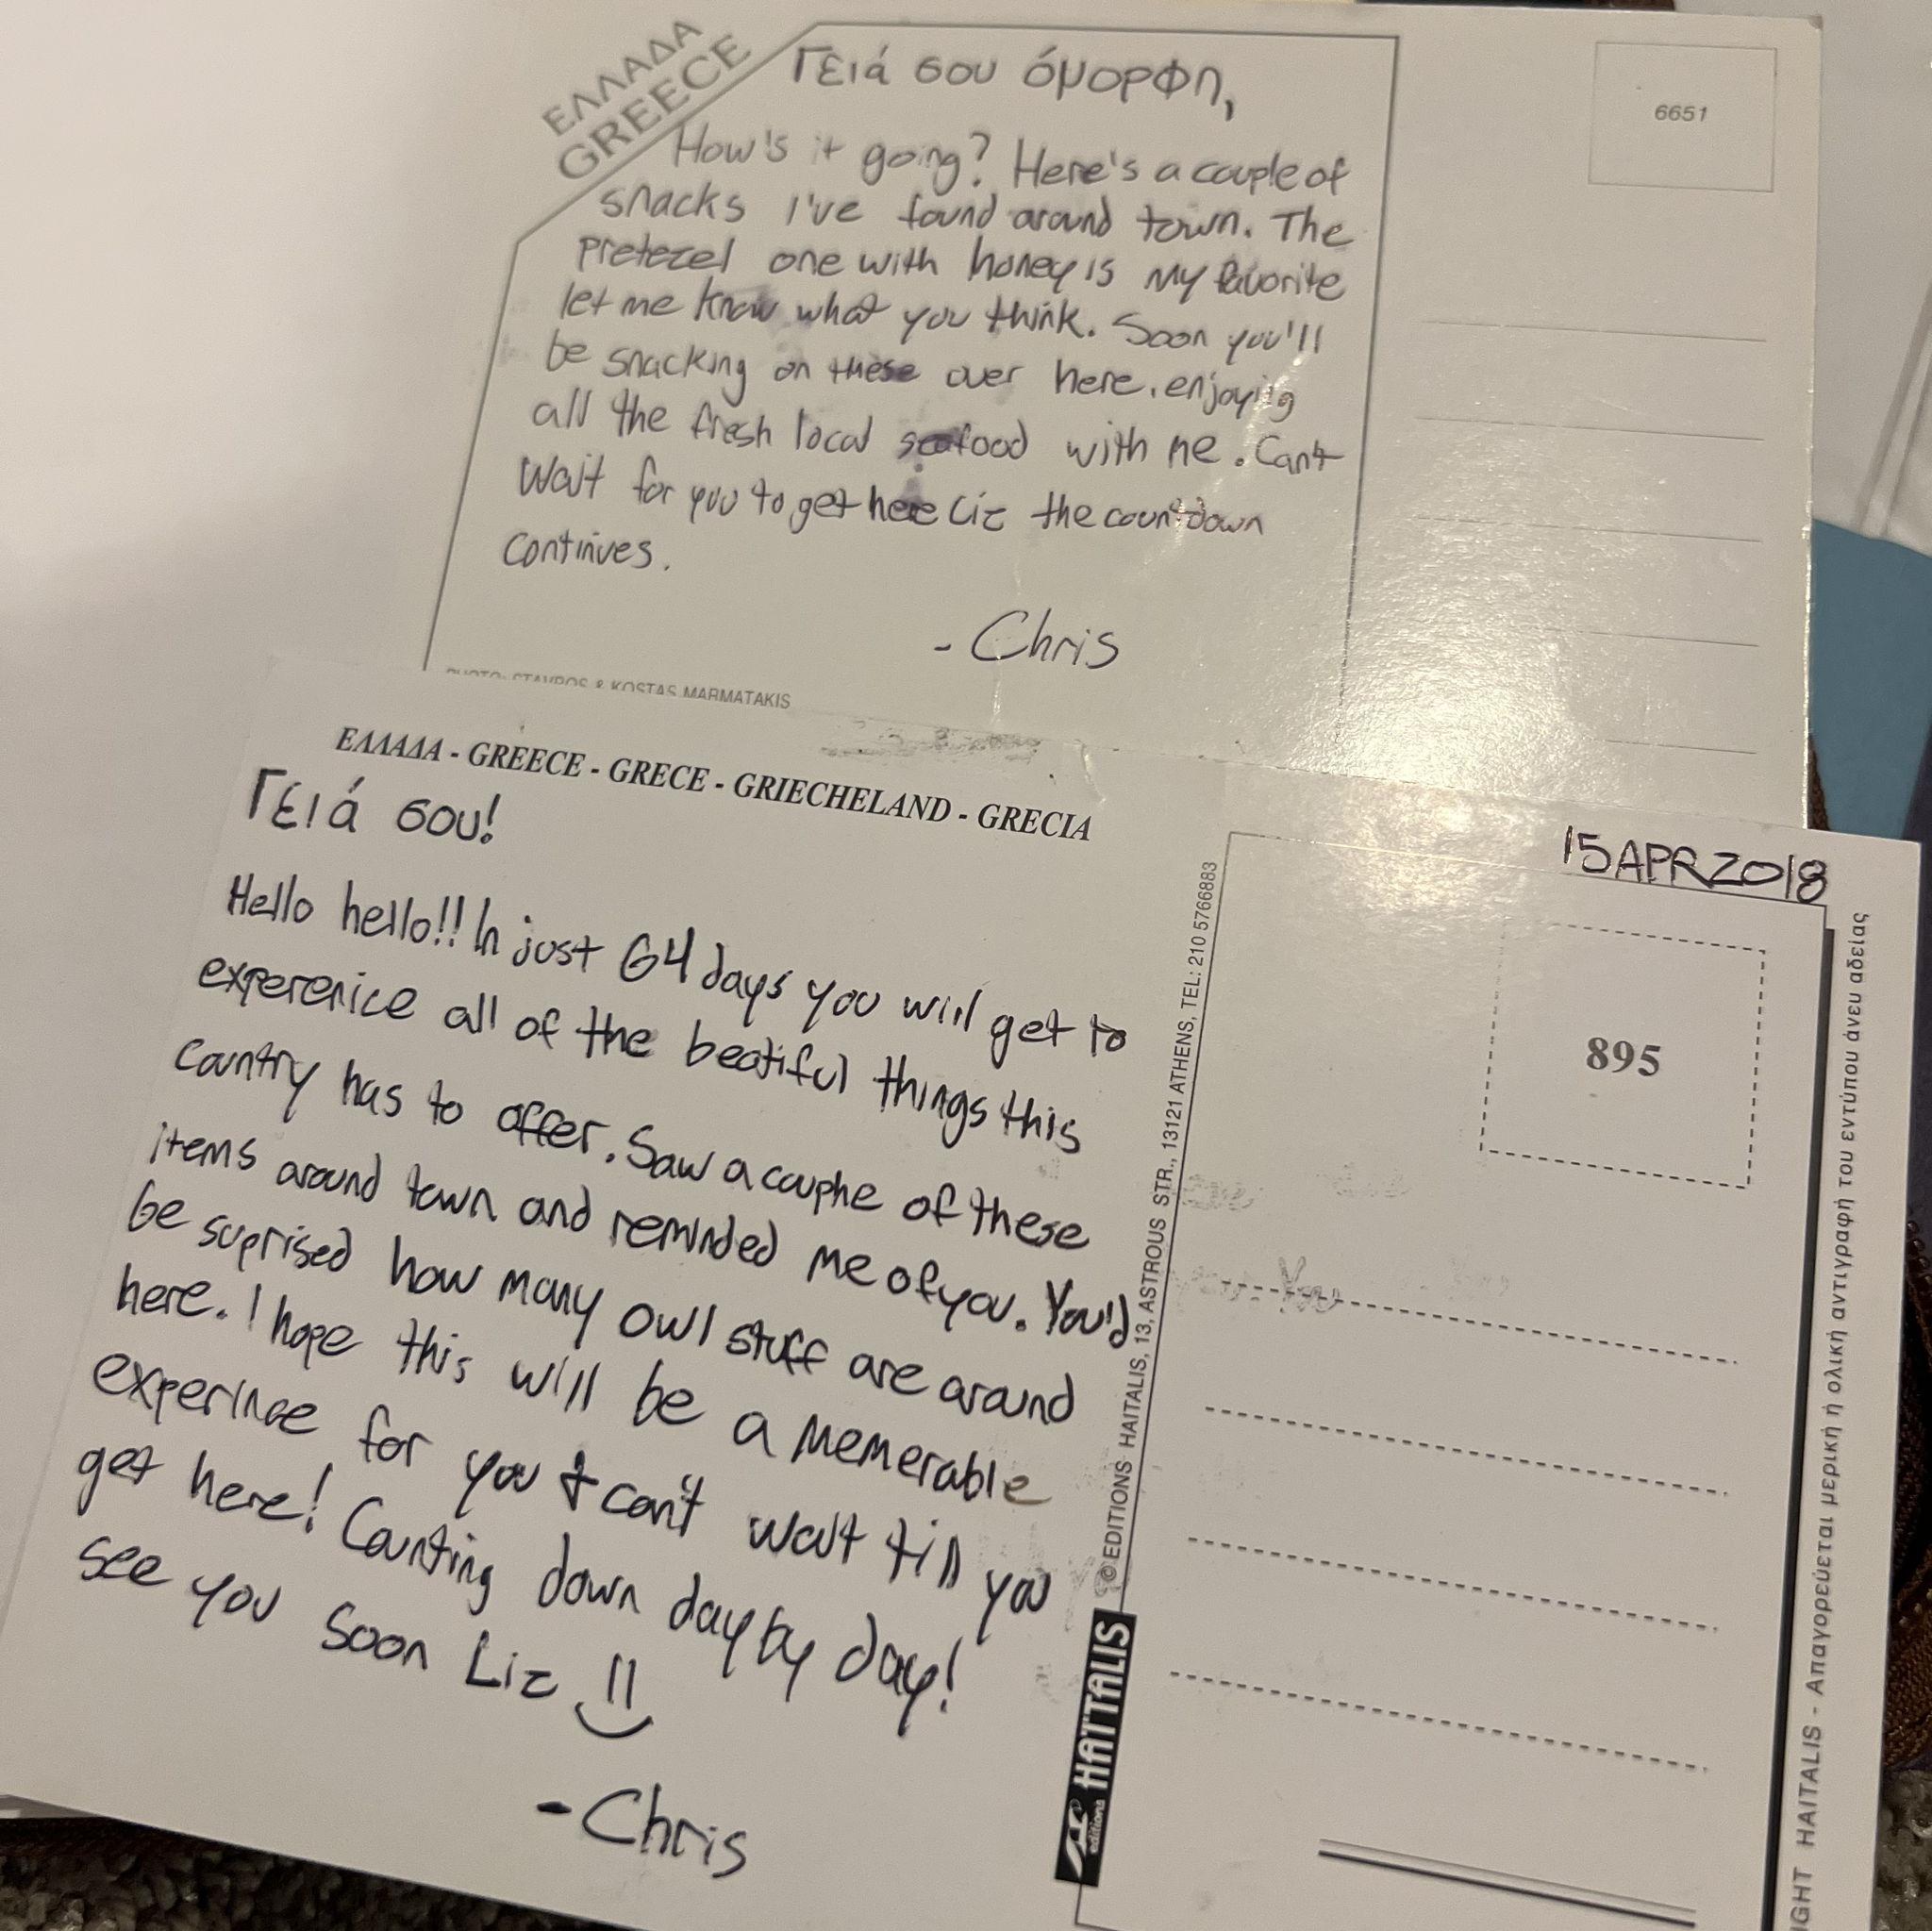 ΕΛΛΑΔΑ
GREECE
Γειά σου όμορφη,
How's it going? Here's a couple of
snacks I've found around town. The
pretezel one with honey is my favorite
let me know what you think. Soon you'll
be snacking on these over here, enjoying
all the fresh local seafood with me. Can't
wait for you to get here Liz the countdown
continues.
- Chris
PHOTO: STAVROS & KOSTAS MARMATAKIS
6651
ΕΛΛΑΔΑ - GREECE - GRECE - GRIECHELAND - GRECIA
Γειά σου!
Hello hello!! In just 64 days you will get to
experenice all of the beatiful things this
country has to offer. Saw a couple of these
items around town and reminded me of you. You'd
be suprised how many owl stuff are around
here. I hope this will be a memerable
experince for you & can't wait till you
get here! Counting down day by day!
see you soon Liz
- Chris
© EDITIONS HAITALIS, 13, ASTROUS STR., 13121 ATHENS, TEL: 210 5766883
editions HAITALIS
15APR2018
895
IGHT HAITALIS - Απαγορεύεται μερική ή ολική αντιγραφή του εντύπου άνευ αδείας